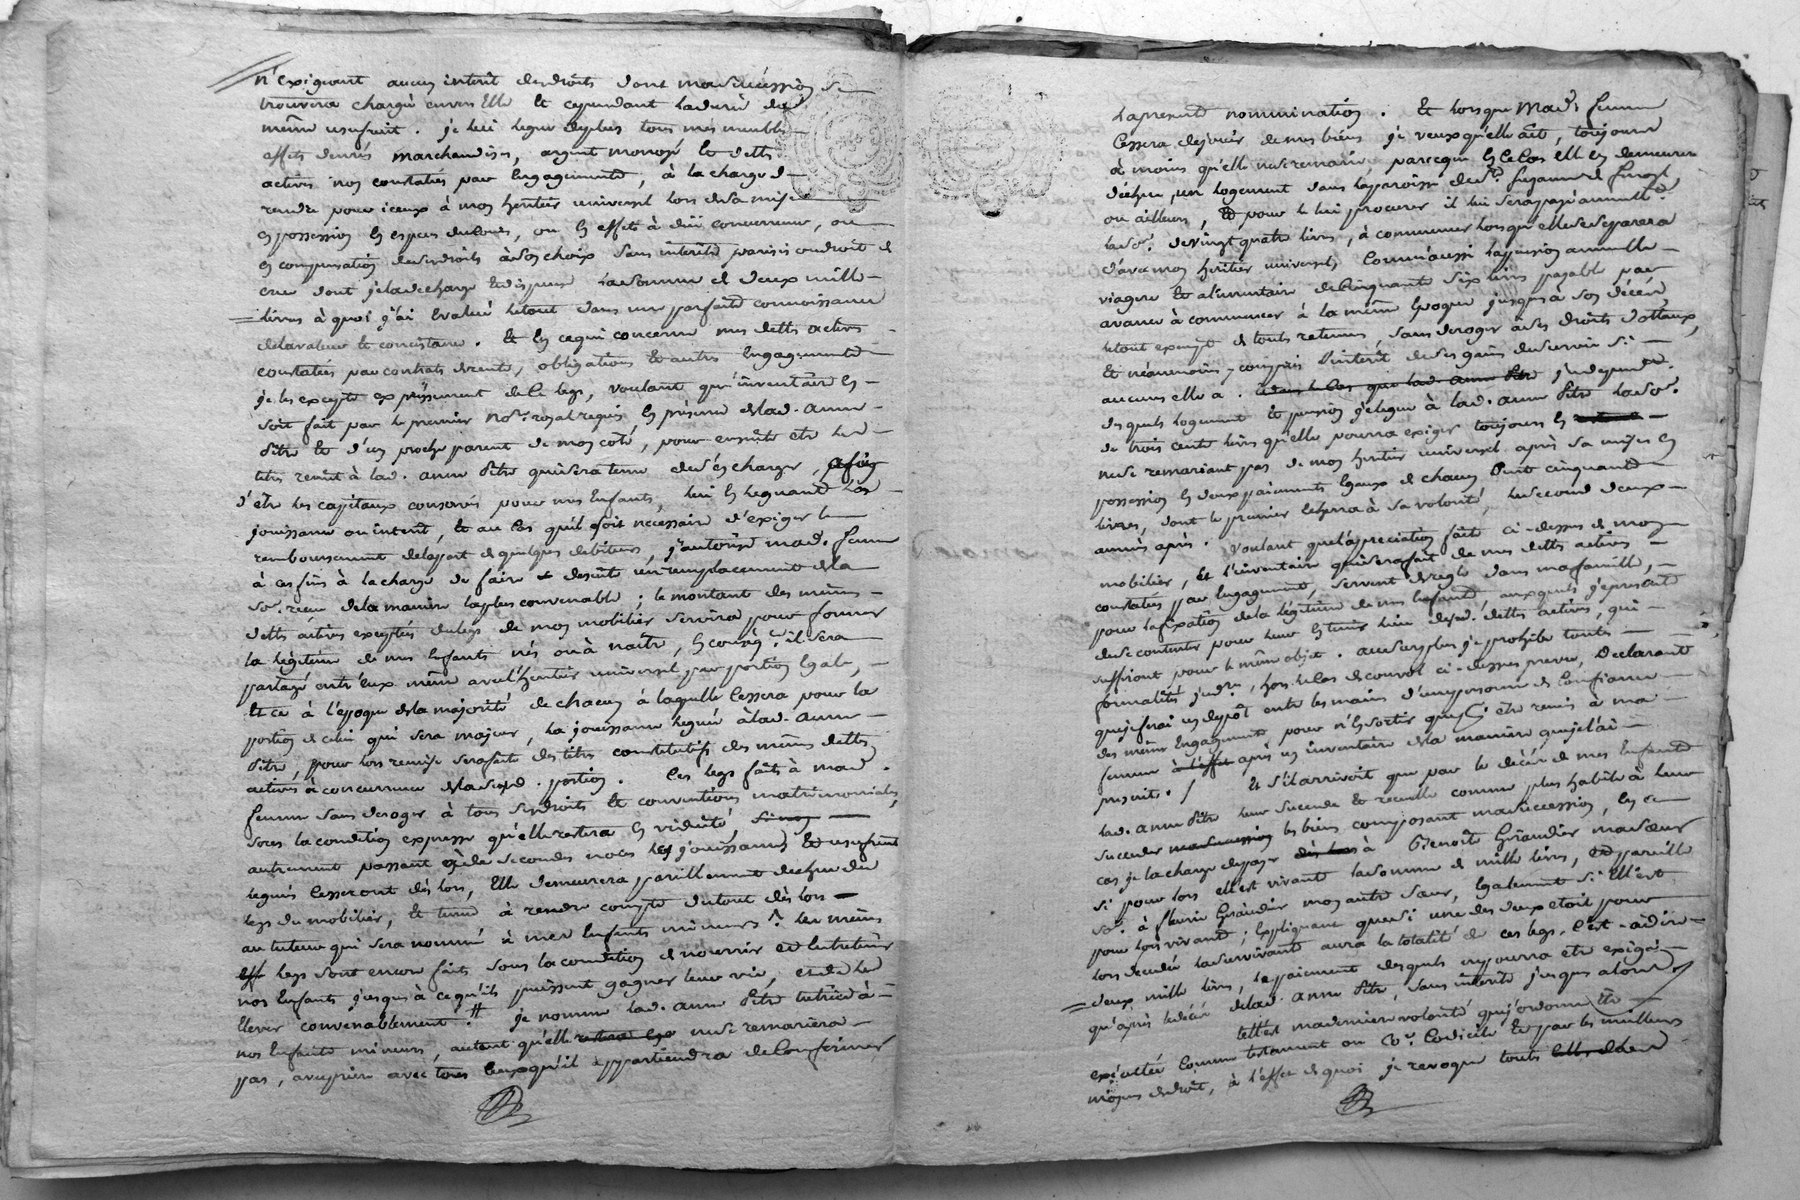 n'exigeant aucun interêt des droits dont ma succession se
trouvera chargée envers Elle Et cependant la durée du
même usufruit. je lui legue deplus tous mes meubles
effets denrés marchandises, argent monoyé Et dettes
actives non constatées par Engagements, à la charge de
rendre pour iceux à mon heritier universel lors de sa mise
En possession En especes de cours, ou En effets à düe concurrence, ou
En compensation de ses droits à son choix sans interêts parisis ou droit de
crue dont je la decharge Et dispense la somme de deux mille
livres à quoi j'ai Evalué le tout dans une parfaite connoissance
de la valeur Et consistance. Et En ce qui concerne mes dettes actives
constatées par contrats de rente, obligations Et autres Engagements
je les excepte expressement de ce legs, voulant qu'inventaire En
soit fait par le premier No.re royal requis, En présence de lad. anne
Pitre Et d'un proche parent de mon coté, pour ensuite etre les d.
titres remis à lad. anne Pitre qui sera tenue de s'en charger, afin
d'être les capitaux conservés pour mes Enfants, lui En leguant la
jouissance ou interêt, Et au Cas qu'il soit necessaire d'exiger le
remboursement de la part de quelques debiteurs, j'autorise mad. femme
à ces fins à la charge de faire de suite un remplacement de la
so.e reçue de la maniere la plus convenable; le montant des mêmes
dettes actives exceptées du legs de mon mobilier servira pour former
la légitime de mes Enfants nés ou à naitre, En conséq.ce il sera
partagé entr'eux même avec l'heritier universel par portion Egale,
Et ce à l'epoque de la majorité de chacun à laquelle Cessera pour la
portion de celui qui sera majeur, la jouissance leguée à lad. anne
Pitre, pour lors remise sera faite des titres constitutifs des mêmes dettes
actives à concurrence de la susd. portion. Ces legs faits à mad.
femme sans deroger à tous ses droits Et conventions matrimoniales,
sous la condition expresse qu'elle restera En viduité,
autrement passant à de secondes noces les jouissances Et usufruit
legués Cesseront dès lors, Elle demeurera pareillement dechue du
legs du mobilier, Et tenue à rendre compte du tout dès lors
au tuteur qui sera nommé à mes Enfants mineurs. les mêmes
legs sont encore faits sous la condition de nourrir et Entretenir
nos Enfants jusques à ce qu'ils puissent gagner leur vie, et de les
Elever convenablement. je nomme lad. anne Pitre tutrice à
nos Enfants mineurs, autant qu'elle ne se remariera
pas, avec priere avec tous Ceux qu'il appartiendra de Confirmer
la presente nomination. Et lorsque mad. femme
Cessera de jouir de mes biens je veux qu'elle ait, toujours
à moins qu'elle ne se remarie, parceque En ce Cas elle En demeurera
dechue, un logement dans la paroisse de
ou ailleurs, Et pour le lui procurer il lui sera payé annuell.t
la so.e de vingt quatre livres, à commencer lorsqu'elle se separera
d'avec mon heritier universel, Comm'aussi la pension annuelle
viagere Et alimentaire de Cinquante six livres payable par
avance à commencer à la même Epoque jusques à son décès,
le tout exempt de toute retenue, sans deroger à ses droits dotaux,
Et néanmoins y compris l'interêt de ses gains de survie si
aucuns elle a. independ.t
desquels logement Et pension je legue à lad. anne Pitre la so.e
de trois cents livres qu'elle pourra exiger toujours En
ne se remariant pas de mon heritier universel après sa mise En
possession En deux paiements Egaux de chacun Cent cinquante
livres, dont le premier Echerra à sa volonté, le second deux
années après. Voulant que l'appreciation faite ci-dessus de mon
mobilier, Et l'inventaire qui sera fait de mes dettes actives
constatées par Engagements, servent de regle dans ma famille,
pour la fixation de la légitime de mes Enfants auxquels j'enjoins
de se contenter pour leur En tenir lieu desd. dettes actives, qui
suffiront pour le même objet. au surplus je prohibe toutes
formalités jud.res, hors le Cas de convol ci-dessus prevu, Declarant
que je ferai un depôt entre les mains d'une personne de Confiance
des mêmes Engagements pour n'En sortir que p.r être remis à ma
femme après un inventaire de la maniere que je l'ai
prescrit. / Et s'il arrivoit que par le décès de mes Enfants
lad. anne Pitre leur succede Et recueille comme plus habile à leur
succeder les biens composant ma succession, En ce
cas je la charge de payer à Benoîte Girandier ma sœur
si pour lors elle est vivante la somme de mille livres, Et pareille
so.e à fleurie Girandier mon autre sœur, Egalement si Elle est
pour lors vivante; Expliquant que si une des deux etoit pour
lors decedée la survivante aura la totalité de ces legs, C'est-à-dire
deux mille livres, le paiement desquels ne pourra etre exigé
qu'après le décès de lad. anne Pitre, sans interêts jusques alors
telle est ma derniere volonté que j'ordonne être
exécutée comme testament ou Co.e Codicile Et par les meilleurs
moyens de droit, à l'effet de quoi je revoque toutes